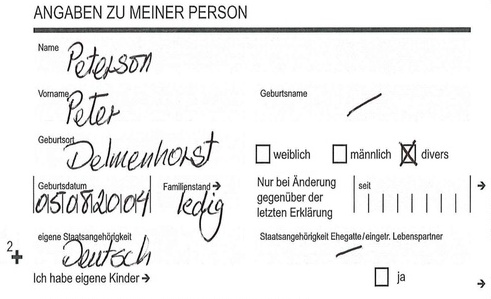 ANGABEN ZU MEINER PERSON
Name
Peterson
Vorname
Peter
Geburtsname
Geburtsort
Delmenhorst
weiblich männlich divers
Geburtsdatum
05082004
Familienstand →
ledig
Nur bei Änderung
gegenüber der
letzten Erklärung
seit
→
2
eigene Staatsangehörigkeit
Deutsch
Staatsangehörigkeit Ehegatte/eingetr. Lebenspartner
Ich habe eigene Kinder →
ja
→